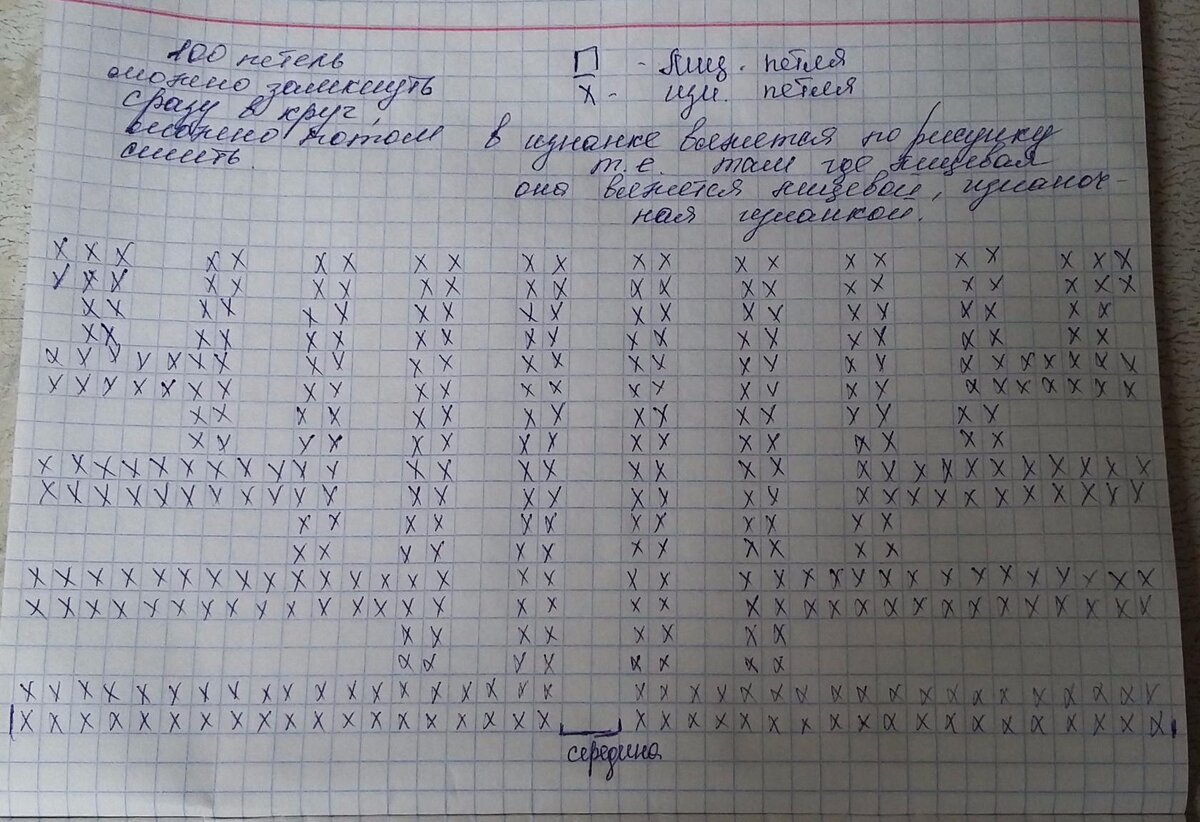 100 петель
можно замкнуть
сразу в круг,
можно потом
сшить.
□ - лиц. петля
х - изн. петля
в изнанке вяжется по рисунку
т.е. там где лицевая
она вяжется лицевой, изнаноч-
ная изнанкой.
х х х х х х х х х х х х х х х х х х х х х х
х х х х х х х х х х х х х х х х х х х х х х
х х х х х х х х х х х х х х х х х х х х
х х х х х х х х х х х х х х х х х х х х
х х х х х х х х х х х х х х х х х х х х х х х х х х
х х х х х х х х х х х х х х х х х х х х х х х х х х
х х х х х х х х х х х х х х х х
х х х х х х х х х х х х х х х х
х х х х х х х х х х х х х х х х х х х х х х х х х х х х х х
х х х х х х х х х х х х х х х х х х х х х х х х х х х х х х
х х х х х х х х х х х х
х х х х х х х х х х х х
х х х х х х х х х х х х х х х х х х х х х х х х х х х х х х х х х х
х х х х х х х х х х х х х х х х х х х х х х х х х х х х х х х х х х
х х х х х х х х
х х х х х х х х
х х х х х х х х х х х х х х х х х х х х х х х х х х х х х х х х х х х х х х
х х х х х х х х х х х х х х х х х х х х х х х х х х х х х х х х х х х х х х
середина